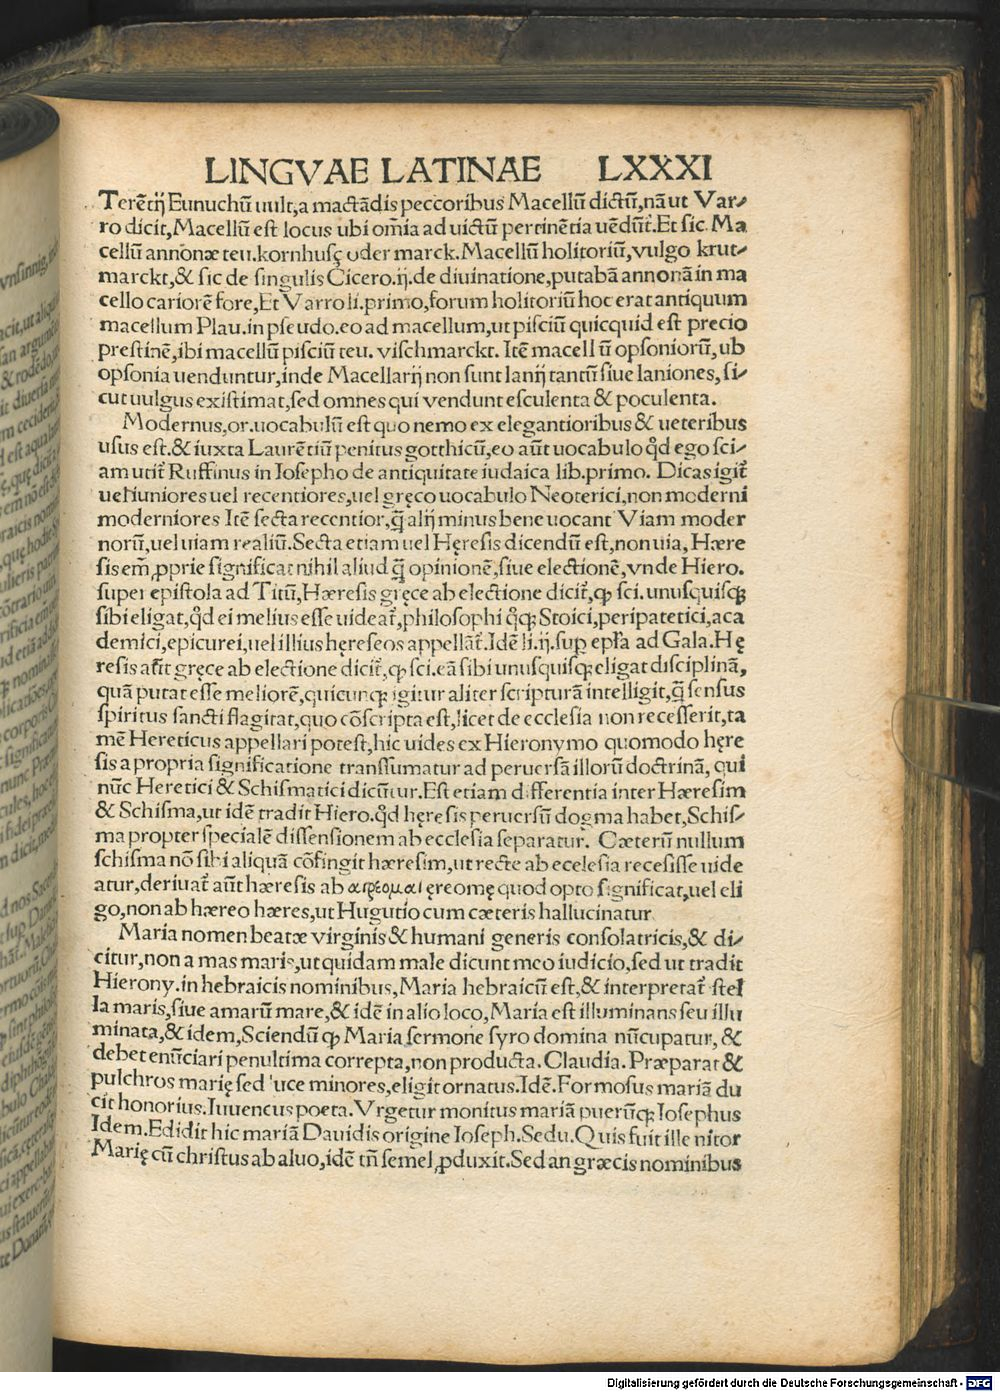 LINGVAE LATINAE LXXXI
Terẽtij Eunuchũ uult, a mactãdis peccoribus Macellũ dictũ, nã ut Var⸗
ro dicit, Macellũ est locus ubi om̃ia ad uictũ pertinẽtia uẽdũt̃. Et sic Ma
cellũ annonæ teu. kornhusz oder marck. Macellũ holitoriũ, vulgo krut⸗
marckt, & sic de singulis Cicero. ij. de diuinatione, putabã annonã in ma
cello cariorẽ fore, Et Varro li. primo, forum holitoriũ hoc erat antiquum
macellum Plau. in pseudo. eo ad macellum, ut pisciũ quicquid est precio
prestinẽ, ibi macellũ pisciũ teu. vischmarckt. Itẽ macellũ opsoniorũ, ub
opsonia uenduntur, inde Macellarij non sunt lanij tantũ siue laniones, si⸗
cut uulgus existimat, sed omnes qui vendunt esculenta & poculenta.
Modernus, or. uocabulũ est quo nemo ex elegantioribus & ueteribus
usus est. & iuxta Laurẽtiũ penitus gotthicũ, eo aũt uocabulo qd̃ ego sci⸗
am utit̃ Ruffinus in Iosepho de antiquitate iudaica lib. primo. Dicas igit̃
uel iuniores uel recentiores, uel gręco uocabulo Neoterici, non moderni
moderniores Itẽ secta recentior, q̃ alij minus bene uocant Viam moder
norũ, uel uiam realiũ. Secta etiam uel Hęresis dicendũ est, non uia, Hære
sis em̃ ꝓprie significat nihil aliud q̃ opinionẽ, siue electionẽ, vnde Hiero.
super epistola ad Titũ, Hæresis gręce ab electione dicit̃, ꝙ sci. unusquisqꝫ
sibi eligat, qd̃ ei melius esse uideat̃, philosophi q̃qꝫ Stoici, peripatetici, aca
demici, epicurei, uel illius hęreseos appellãt̃. Idẽ li. ij. sup̃ ep̃la ad Gala. Hę
resis aũt gręce ab electione dicit̃, ꝙ sci. eã sibi unusquisqꝫ eligat disciplinã,
quã putat esse meliorẽ, quicunqꝫ igitur aliter scripturã intelligit, q̃ sensus
spiritus sancti flagitat, quo cõscripta est, licet de ecclesia non recesserit, ta
mẽ Hereticus appellari potest, hic uides ex Hieronymo quomodo hęre
sis a propria significatione transsumatur ad peruersã illorũ doctrinã, qui
nũc Heretici & Schismatici dicũtur. Est etiam differentia inter Hæresim
& Schisma, ut idẽ tradit Hiero. qd̃ hęresis peruersũ dogma habet, Schis⸗
ma propter specialẽ dissensionem ab ecclesia separatur. Cæterũ nullum
schisma nõ sibi aliquã cõfingit hæresim, ut recte ab ecclesia recesisse uide
atur, deriuat̃ aũt hæresis ab αιρεομαι ęreomę quod opto significat, uel eli
go, non ab hæreo hæres, ut Hugutio cum cæteris hallucinatur
Maria nomen beatæ virginis & humani generis consolatricis, & di⸗
citur, non a mas maris, ut quidam male dicunt meo iudicio, sed ut tradit
Hierony. in hebraicis nominibus, Maria hebraicũ est, & interpretat̃ stel
la maris, siue amarũ mare, & idẽ in alio loco, Maria est illuminans seu illu
minata, & idem, Sciendũ ꝙ Maria sermone syro domina nũcupatur, &
debet enũciari penultima correpta, non producta. Claudia. Præparat &
pulchros marię sed luce minores, eligit ornatus. Idẽ. Formosus mariã du
cit honorius. Iuuencus poeta. Vrgetur monitus mariã puerũqꝫ Iosephus
Idem. Edidit hic mariã Dauidis origine Ioseph. Sedu. Quis fuit ille nitor
Marię cũ christus ab aluo, idẽ tñ semel ꝓduxit. Sed an græcis nominibus
Digitalisierung gefördert durch die Deutsche Forschungsgemeinschaft - DFG